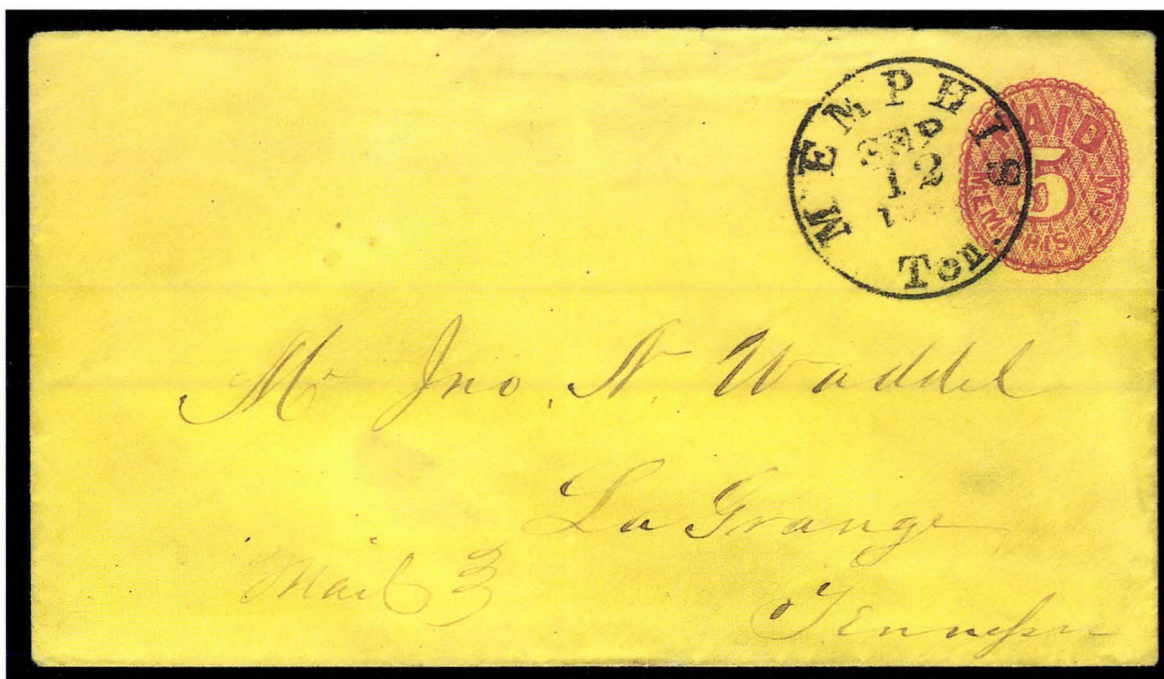 MEMPHIS
SEP
12
Ten.
PAID
5
MEMPHIS, TENN
Mr Jno. N. Waddel
La Grange
Mail 3
Tennessee